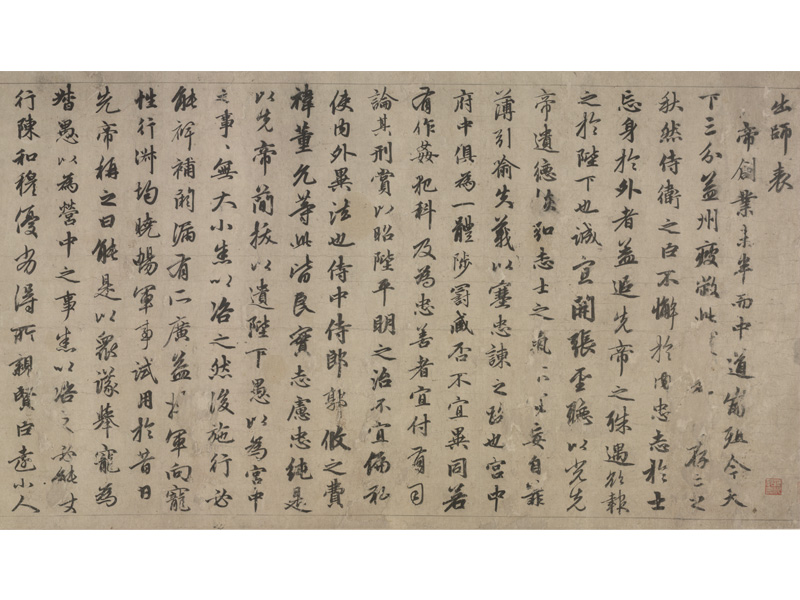 出師表
帝創業未半而中道崩殂今天
下三分益州疲敝此存亡之
秋然侍衛之臣不懈於內忠志於士
忘身於外者蓋追先帝之殊遇欲報
之於陛下也誠宜開張聖聽以光先
帝遺德恢弘志士之氣不宜妄自菲
薄引喻失義以塞忠諫之路也宮中
府中俱為一體陟罰臧否不宜異同若
有作姦犯科及為忠善者宜付有司
論其刑賞以昭陛平明之治不宜偏私
使內外異法也侍中侍郎郭攸之費
禕董允等此皆良實志慮忠純是
以先帝簡拔以遺陛下愚以為宮中
之事、無大小悉以咨之然後施行必
能裨補闕漏有所廣益將軍向寵
性行淑均曉暢軍事試用於昔日
先帝稱之曰能是以眾議舉寵為
督愚以為營中之事悉以咨之必能
行陳和穆優劣得所親賢臣遠小人